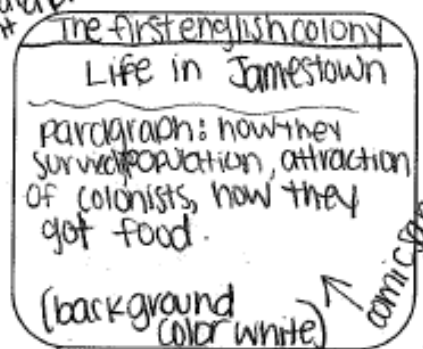 The first english colony
Life in Jamestown
paragraph: how they
survied population, attraction
of colonists, how they
got food.
(background
color white)
comic